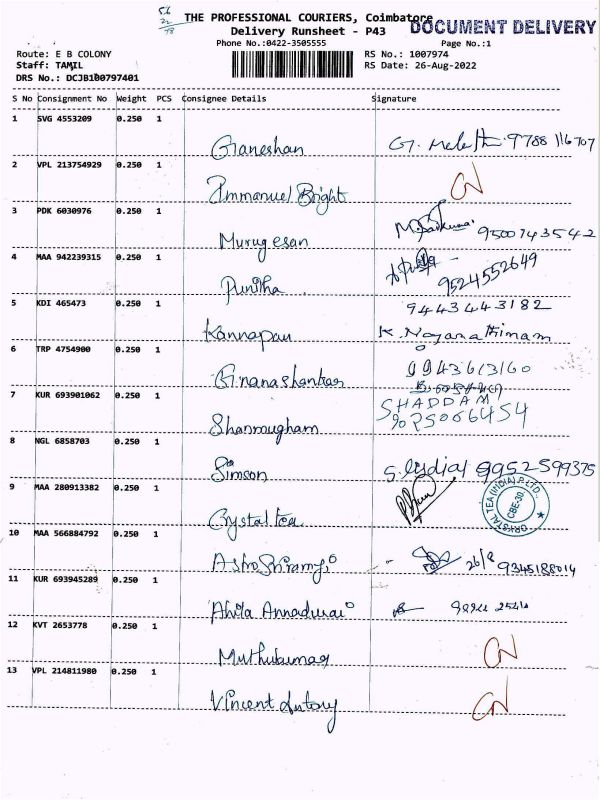 56
THE PROFESSIONAL COURIERS, Coimbatore
DOCUMENT DELIVERY
Delivery Runsheet - P43
Phone No.:0422-3505555
Page No.:1
Route: E B COLONY
RS No.: 1007974
Staff: TAMIL
RS Date: 26-Aug-2022
DRS No.: DCJB100797401
S No Consignment No Weight PCS Consignee Details Signature
1 SVG 4553209 0.250 1
Ganeshan 9788 116707
2 VPL 213754929 0.250 1
Immanuel Bright
3 PDK 6030976 0.250 1
Murugesan 9500743542
4 MAA 942239315 0.250 1
Punitha 9524552649
5 KDI 465473 0.250 1
9443443182
Kannapan K. Nayanathinam
6 TRP 4754900 0.250 1
Gnanashankar 9943613160
7 KUR 693901062 0.250 1
SHADDAM
Shanmugham 9025066454
8 NGL 6858703 0.250 1
Simson S. Lydia 9952599375
9 MAA 280913382 0.250 1
Crystal tea
CRYSTAL TEA (INDIA) P.LTD.
CBE-30.
10 MAA 566884792 0.250 1
Astro Sriramji 26/8 9345188014
11 KUR 693945289 0.250 1
Ahila Annadurai
12 KVT 2653778 0.250 1
Muthukumar
13 VPL 214811980 0.250 1
Vincent Antony